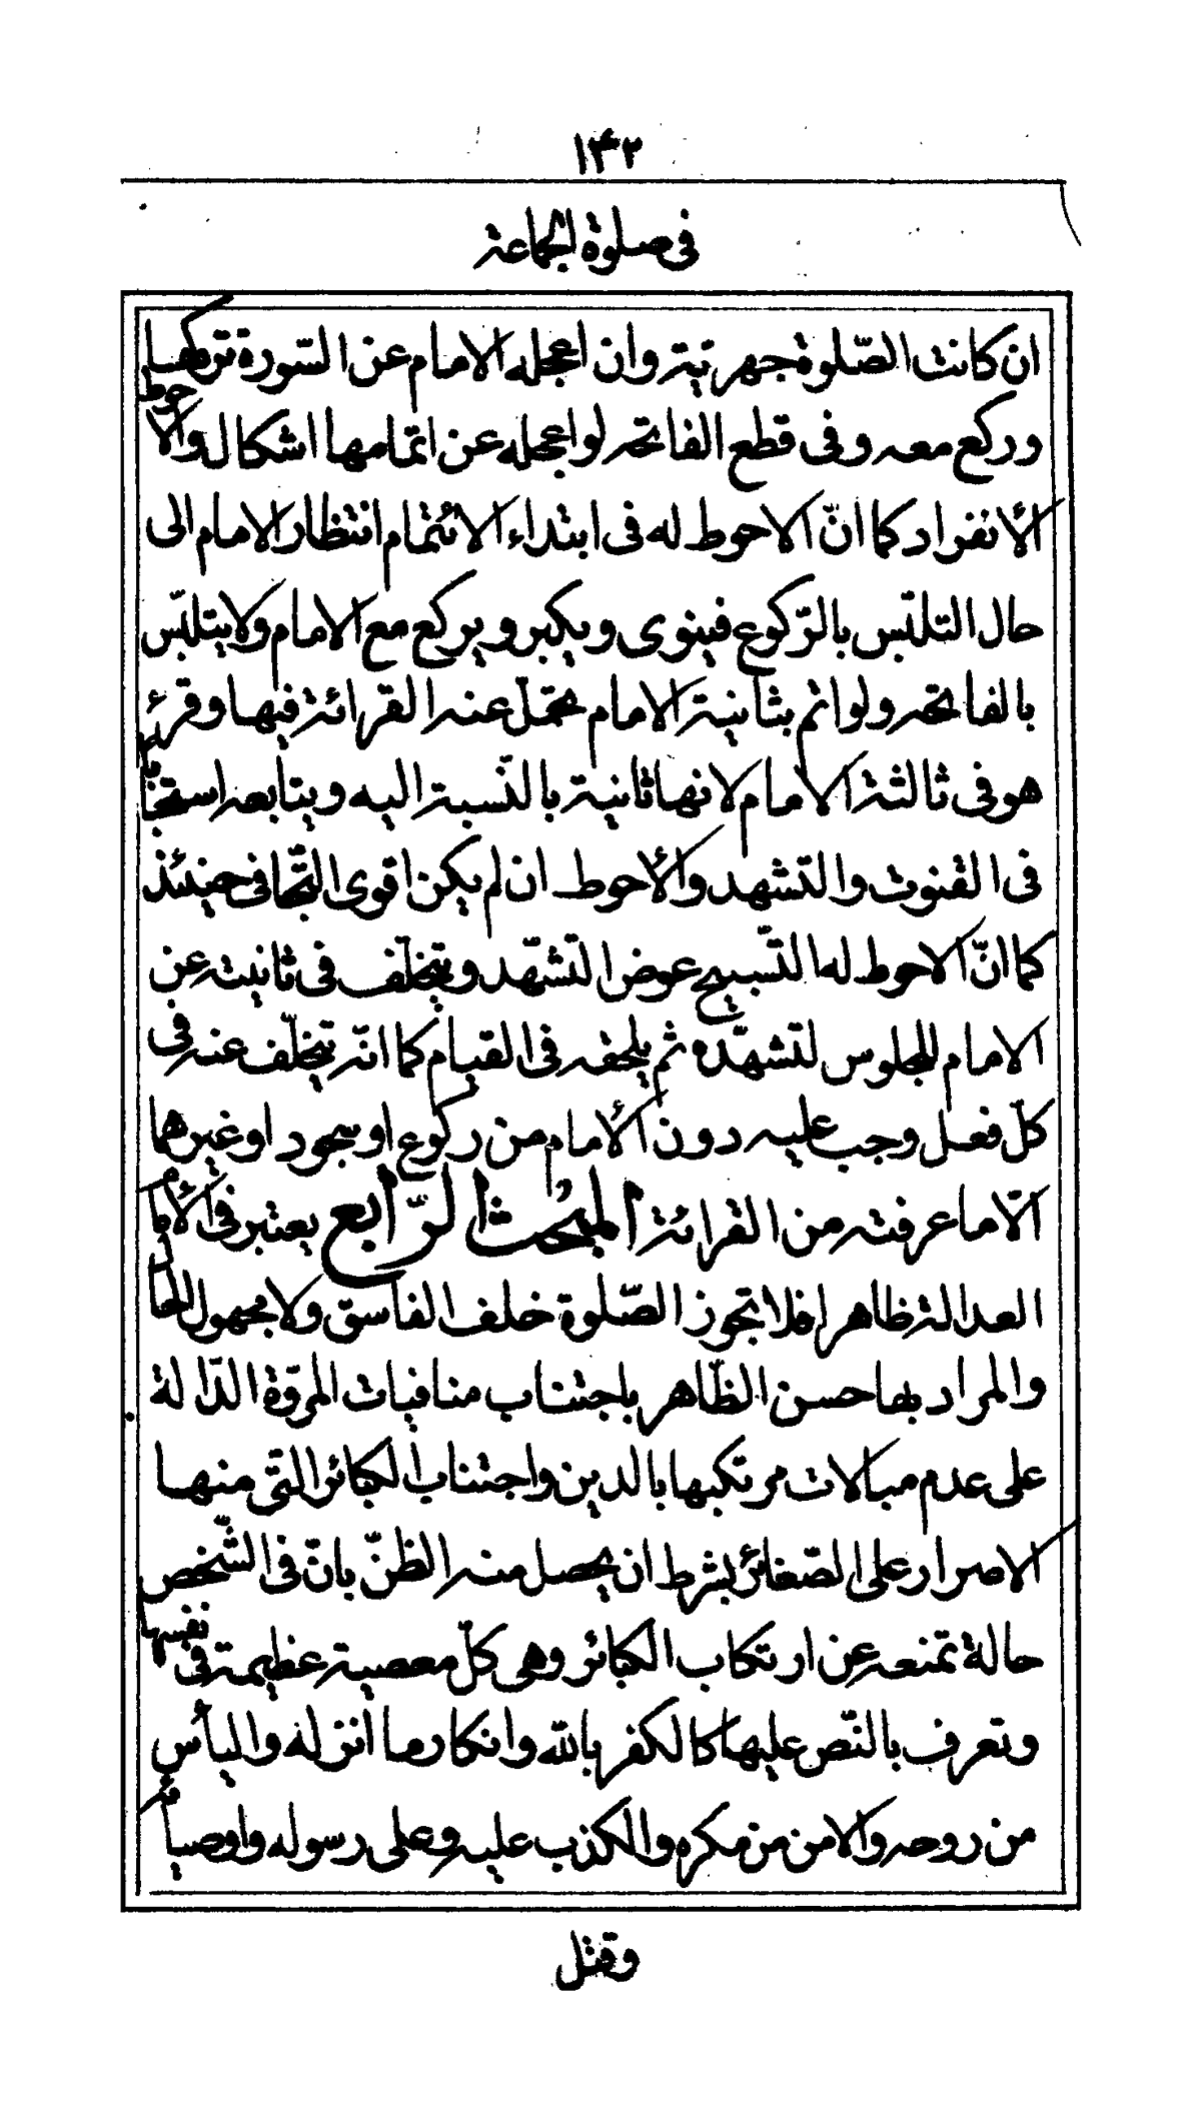 ۱۴۲
فى صلوة الجماعة
ان كانت الصّلوة جهريّة وان اعجله الامام عن السّورة تركها
وركع معه وفى قطع الفاتحه لو اعجله عن اتمامها اشكال والاحوط
الأنفراد كما انّ الاحوط له فى ابتداء الائتمام انتظار الامام الى
حال التلبّس بالرّكوع فينوى ويكبر ويركع مع الامام ولا يتلبّس
بالفاتحه ولو ائتم بثانية الامام تحمّل عنه القرائة فيها وقرء
هو فى ثالثة الامام لانها ثانية بالنّسبة اليه ويتابعه استحبابا
فى القنوت والتّشهد والأحوط ان لم يكن اقوى التّجافى حينئذ
كما انّ الاحوط له التّسبيح عوض التّشهّد ويتخلّف فى ثانيته عن
الامام للجلوس لتشهّده ثم يلحقه فى القيام كما انّه يتخلّف عنه فى
كلّ فعل وجب عليه دون الأمام من ركوع او سجود او غيرهما
الّا ما عرفته من القرائة المبحث الرّابع يعتبر فى الأمام
العدالة ظاهرا فلا تجوز الصّلوة خلف الفاسق ولا مجهول الحال
والمراد بها حسن الظّاهر باجتناب منافيات المروّة الدّالة
على عدم مبالات مرتكبها بالدين واجتناب الكبائر التّى منها
الاصرار على الصّغائر بشرط ان يحصل منه الظنّ بانّ فى الشّخص
حالة تمنعه عن ارتكاب الكبائر وهى كلّ معصية عظيمة فى نفسها
وتعرف بالنّص عليها كالكفر بالله وانكار ما انزله واليأس
من روحه والامن من مكره والكذب عليه وعلى رسوله واوصيائه
وقتل